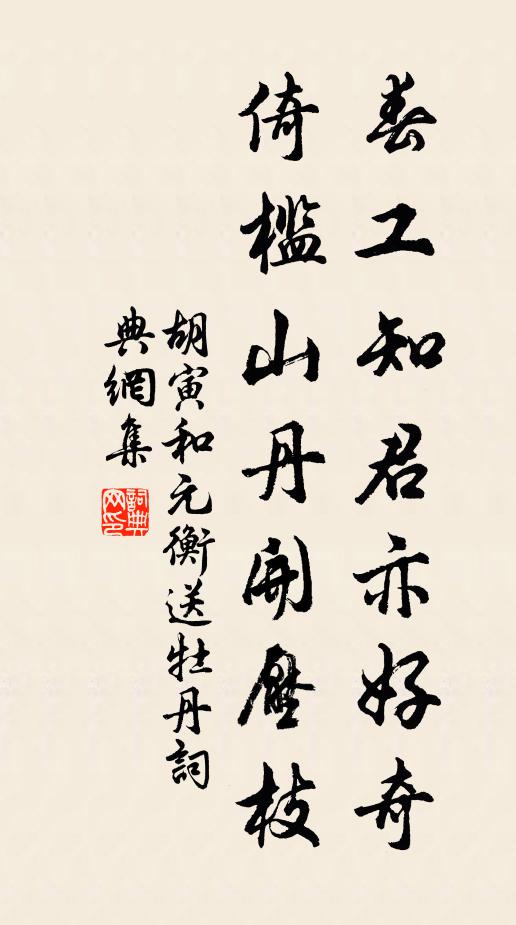 春工知君亦好奇
倚檻山丹開壓枝
胡寅和元衡送牡丹詞
典網集
詞典網印